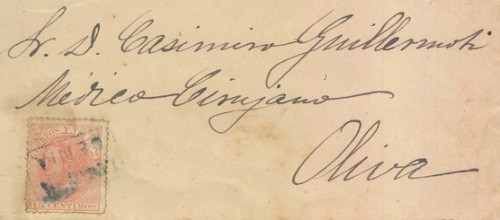 Sr. D. Casimiro Guillermoti
Médico Cirujano
Oliva
15 CENTIMOS